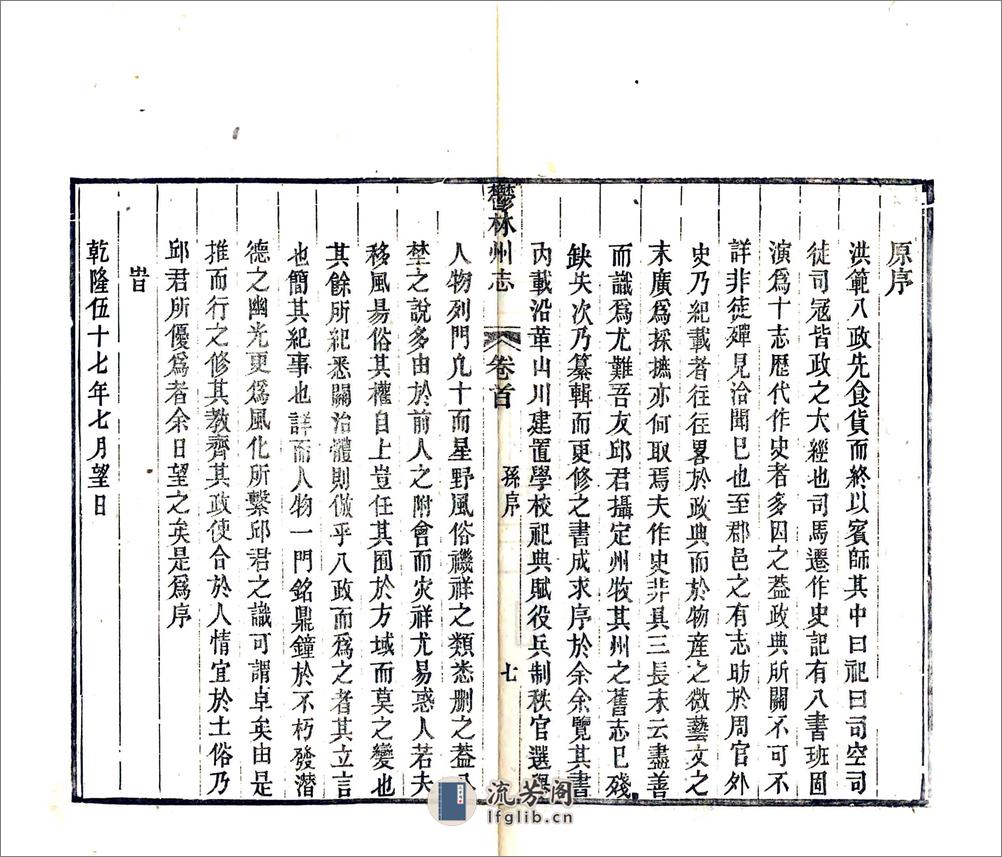 原序
洪範八政先食貨而終以賓師其中曰祀曰司空司
徒司冦皆政之大經也司馬遷作史記有八書班固
演爲十志歷代作史者多因之葢政典所關不可不
詳非徒殫見洽聞已也至郡邑之有志昉於周官外
史乃紀載者往往畧於政典而於物產之微藝文之
末廣爲採摭亦何取焉夫作史非具三長未云盡善
而識爲尤難吾友邱君攝定州牧其州之舊志已殘
缺失次乃纂輯而更修之書成求序於余余覽其書
內載沿革山川建置學校祀典賦役兵制秩官選舉
鬱林州志
卷首
孫序
七
人物列門凡十而星野風俗禨祥之類悉删之葢分
埜之說多由於前人之附會而灾祥尤易惑人若夫
移風易俗其權自上豈任其囿於方域而莫之變也
其餘所紀悉關治體則倣乎八政而爲之者其立言
也簡其紀事也詳而人物一門銘鼎鐘於不朽發潛
德之幽光更爲風化所繫邱君之識可謂卓矣由是
推而行之修其教齊其政使合於人情宜於土俗乃
邱君所優爲者余日望之矣是爲序
旹
乾隆伍十七年七月望日
流芳阁
lfglib.cn